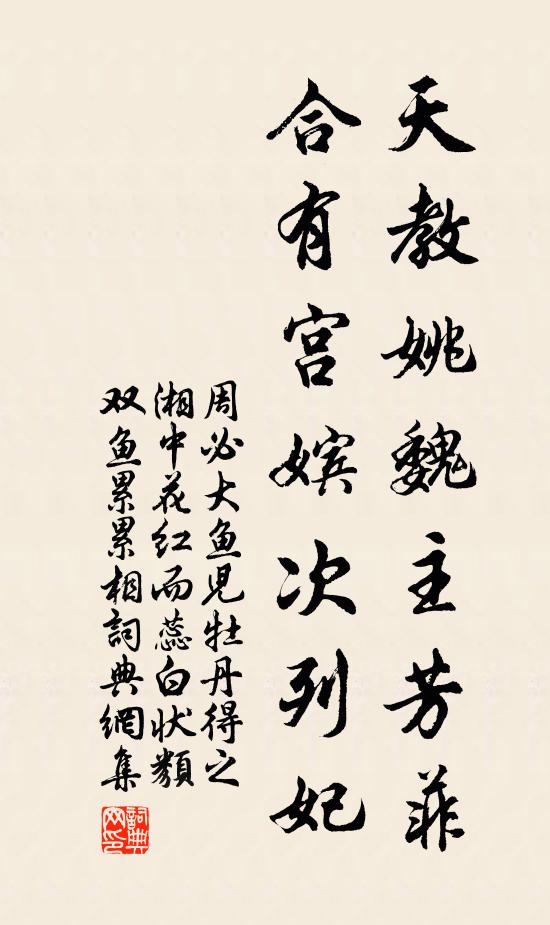 天教姚魏主芳菲
合有宫嫔次列妃
周必大鱼児牡丹得之
湘中花红而蕊白状類
双鱼累累相詞典網集
詞典网印